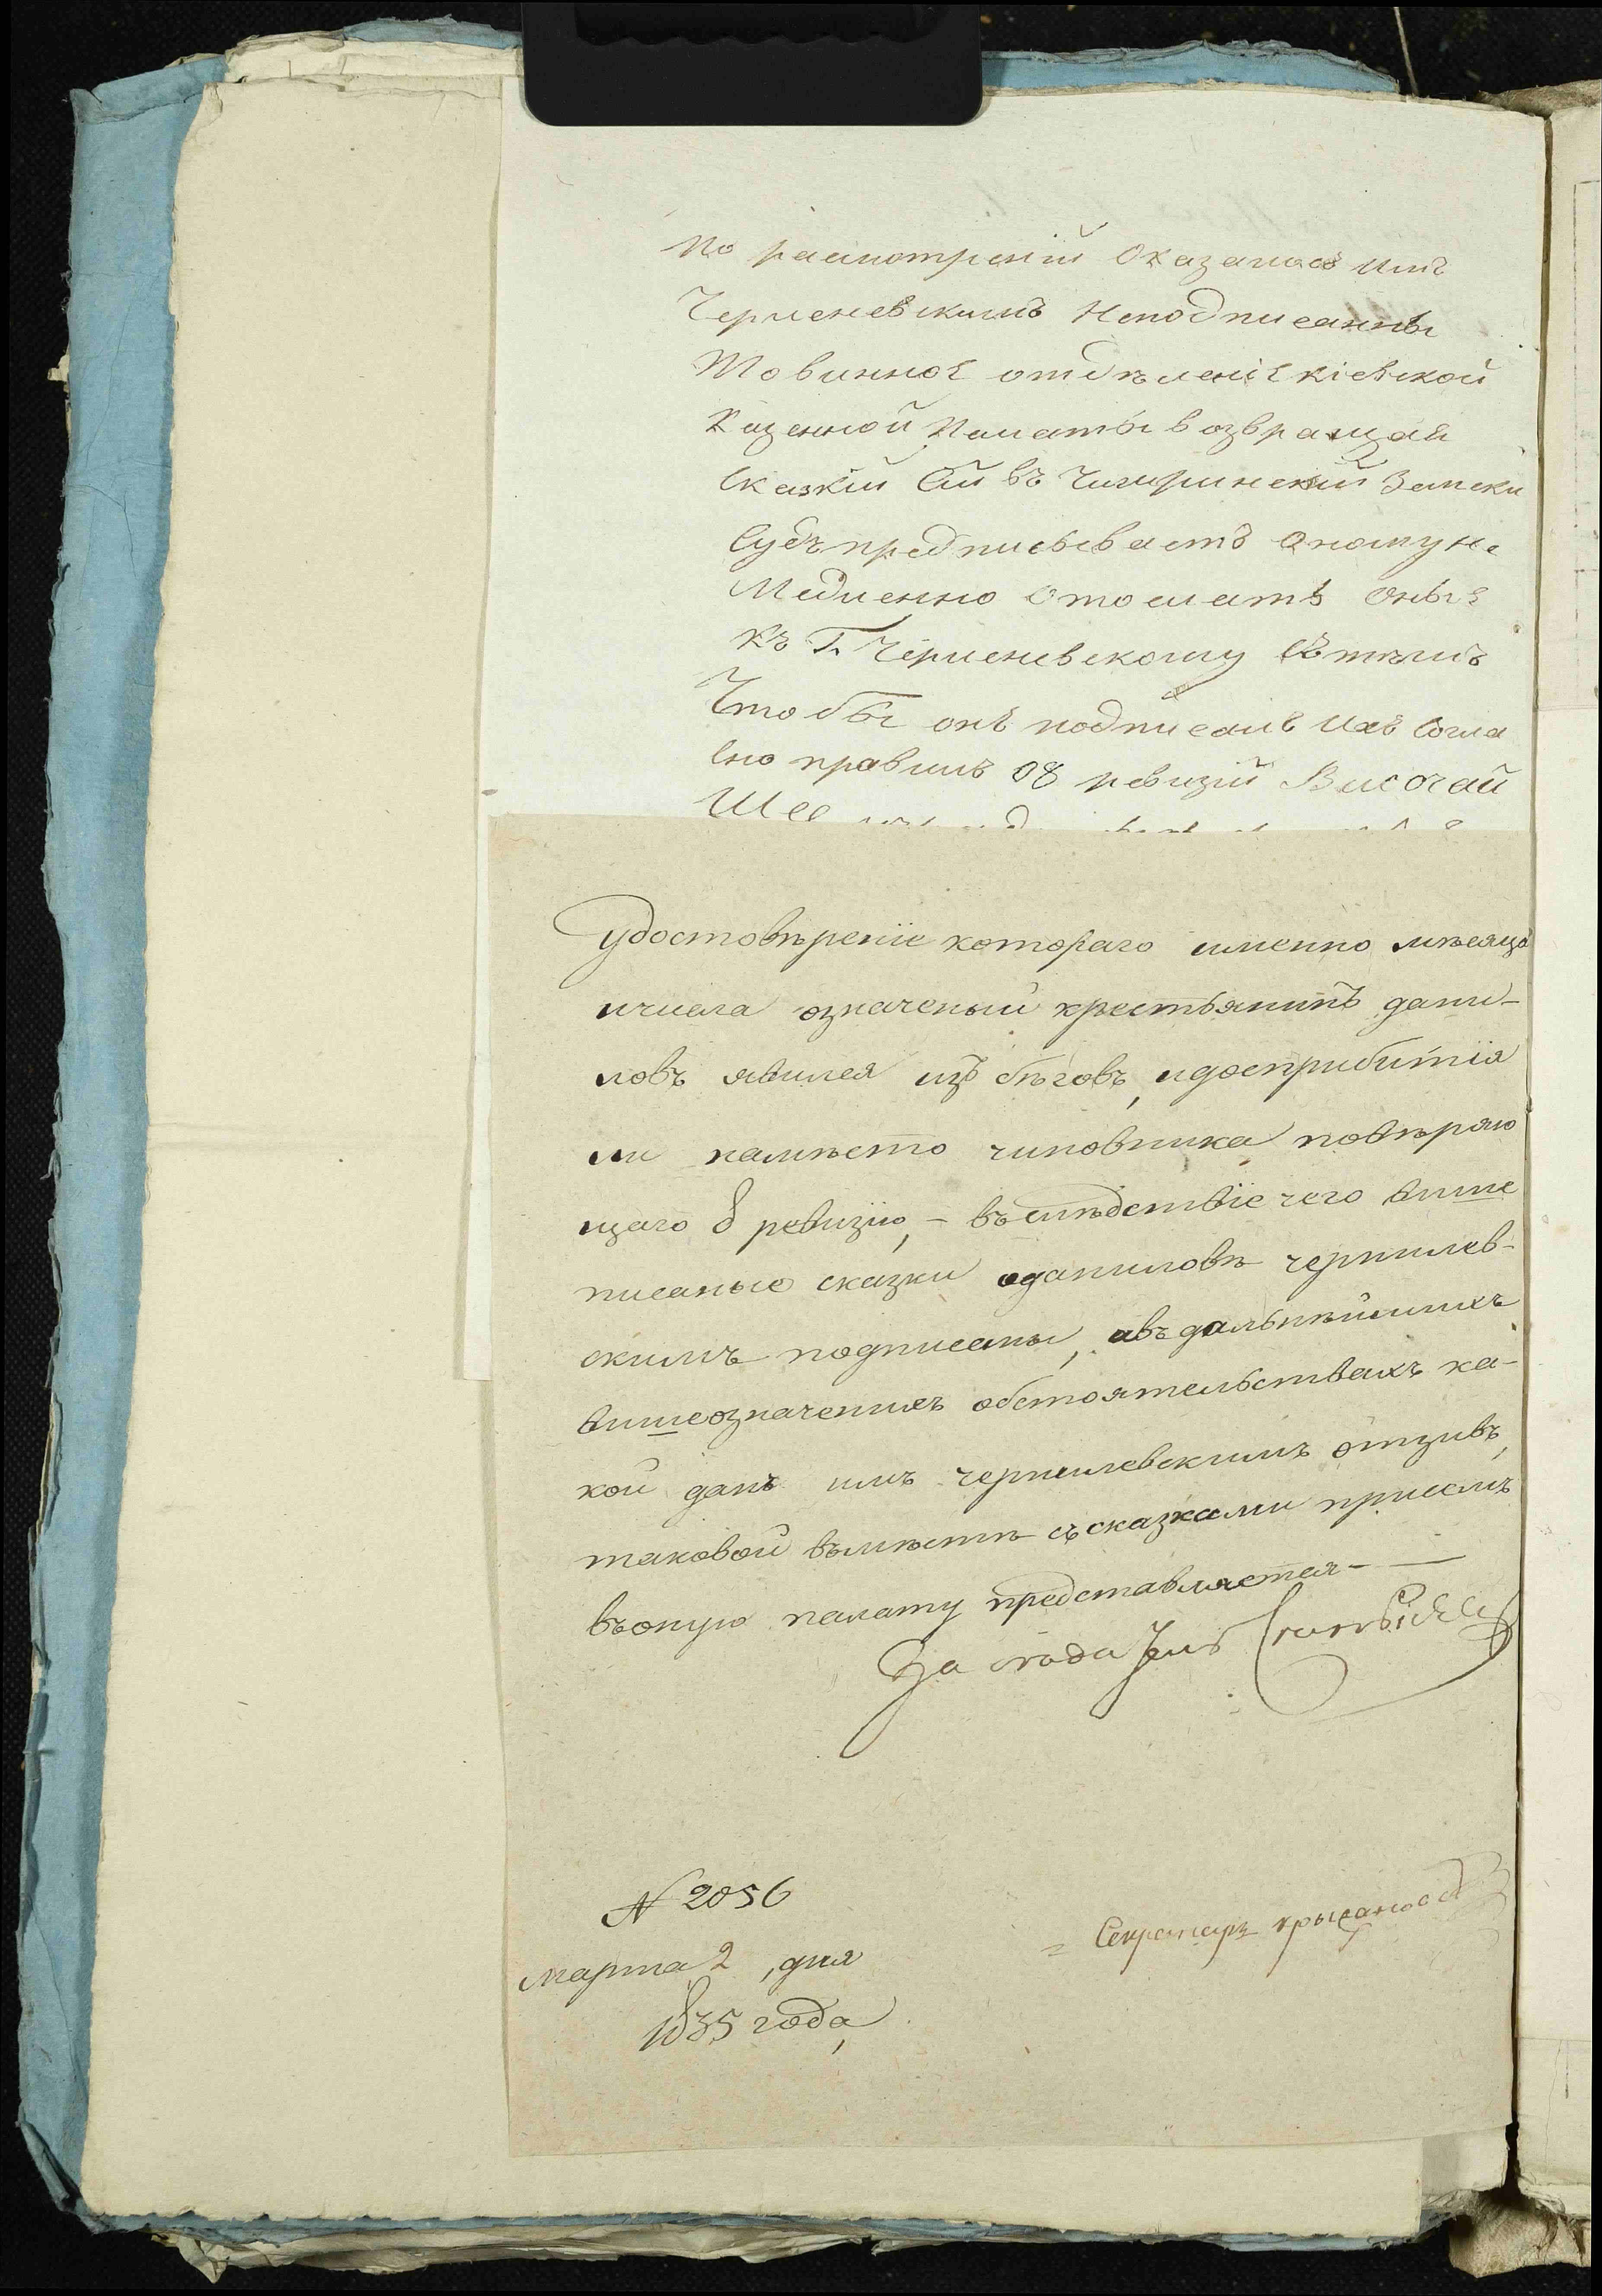 по расмотреній Оказалось имъ
Черменевскимъ Неподписанны
То винное отдѣленіе Кіевской
Казенной Палаты возвращая
Сказкій Сій въ Чигиринскій Земски
Судъ предписываетъ Оному не
Медленно Отослать Оные
къ Г. Черменевскому съ тѣмъ
Что бы онъ подписалъ Ихъ Согла
сно правилъ О 8 ревизій Височай
Шее
удостовѣреніе котораго именно мѣсяца
ичисла означеный крестьянинъ дани-
ловъ явился изъ бѣговъ, идоприбитія
ли намѣсто чиновника повѣряю
щаго 8 ревизію, - въслѣдствіе чего више
писаные сказки оданиловѣ чермилев-
скимъ подписаны, авъдальнѣйшихъ
вишеозначенихъ обстоятельствахъ ка-
кой данъ имъ чермилевскимъ отзивъ,
таковой вмѣстѣ съсказками присемъ
въоную палату представляется-
За
N 2056
марта 2, дня
1835 года,
Секретарь